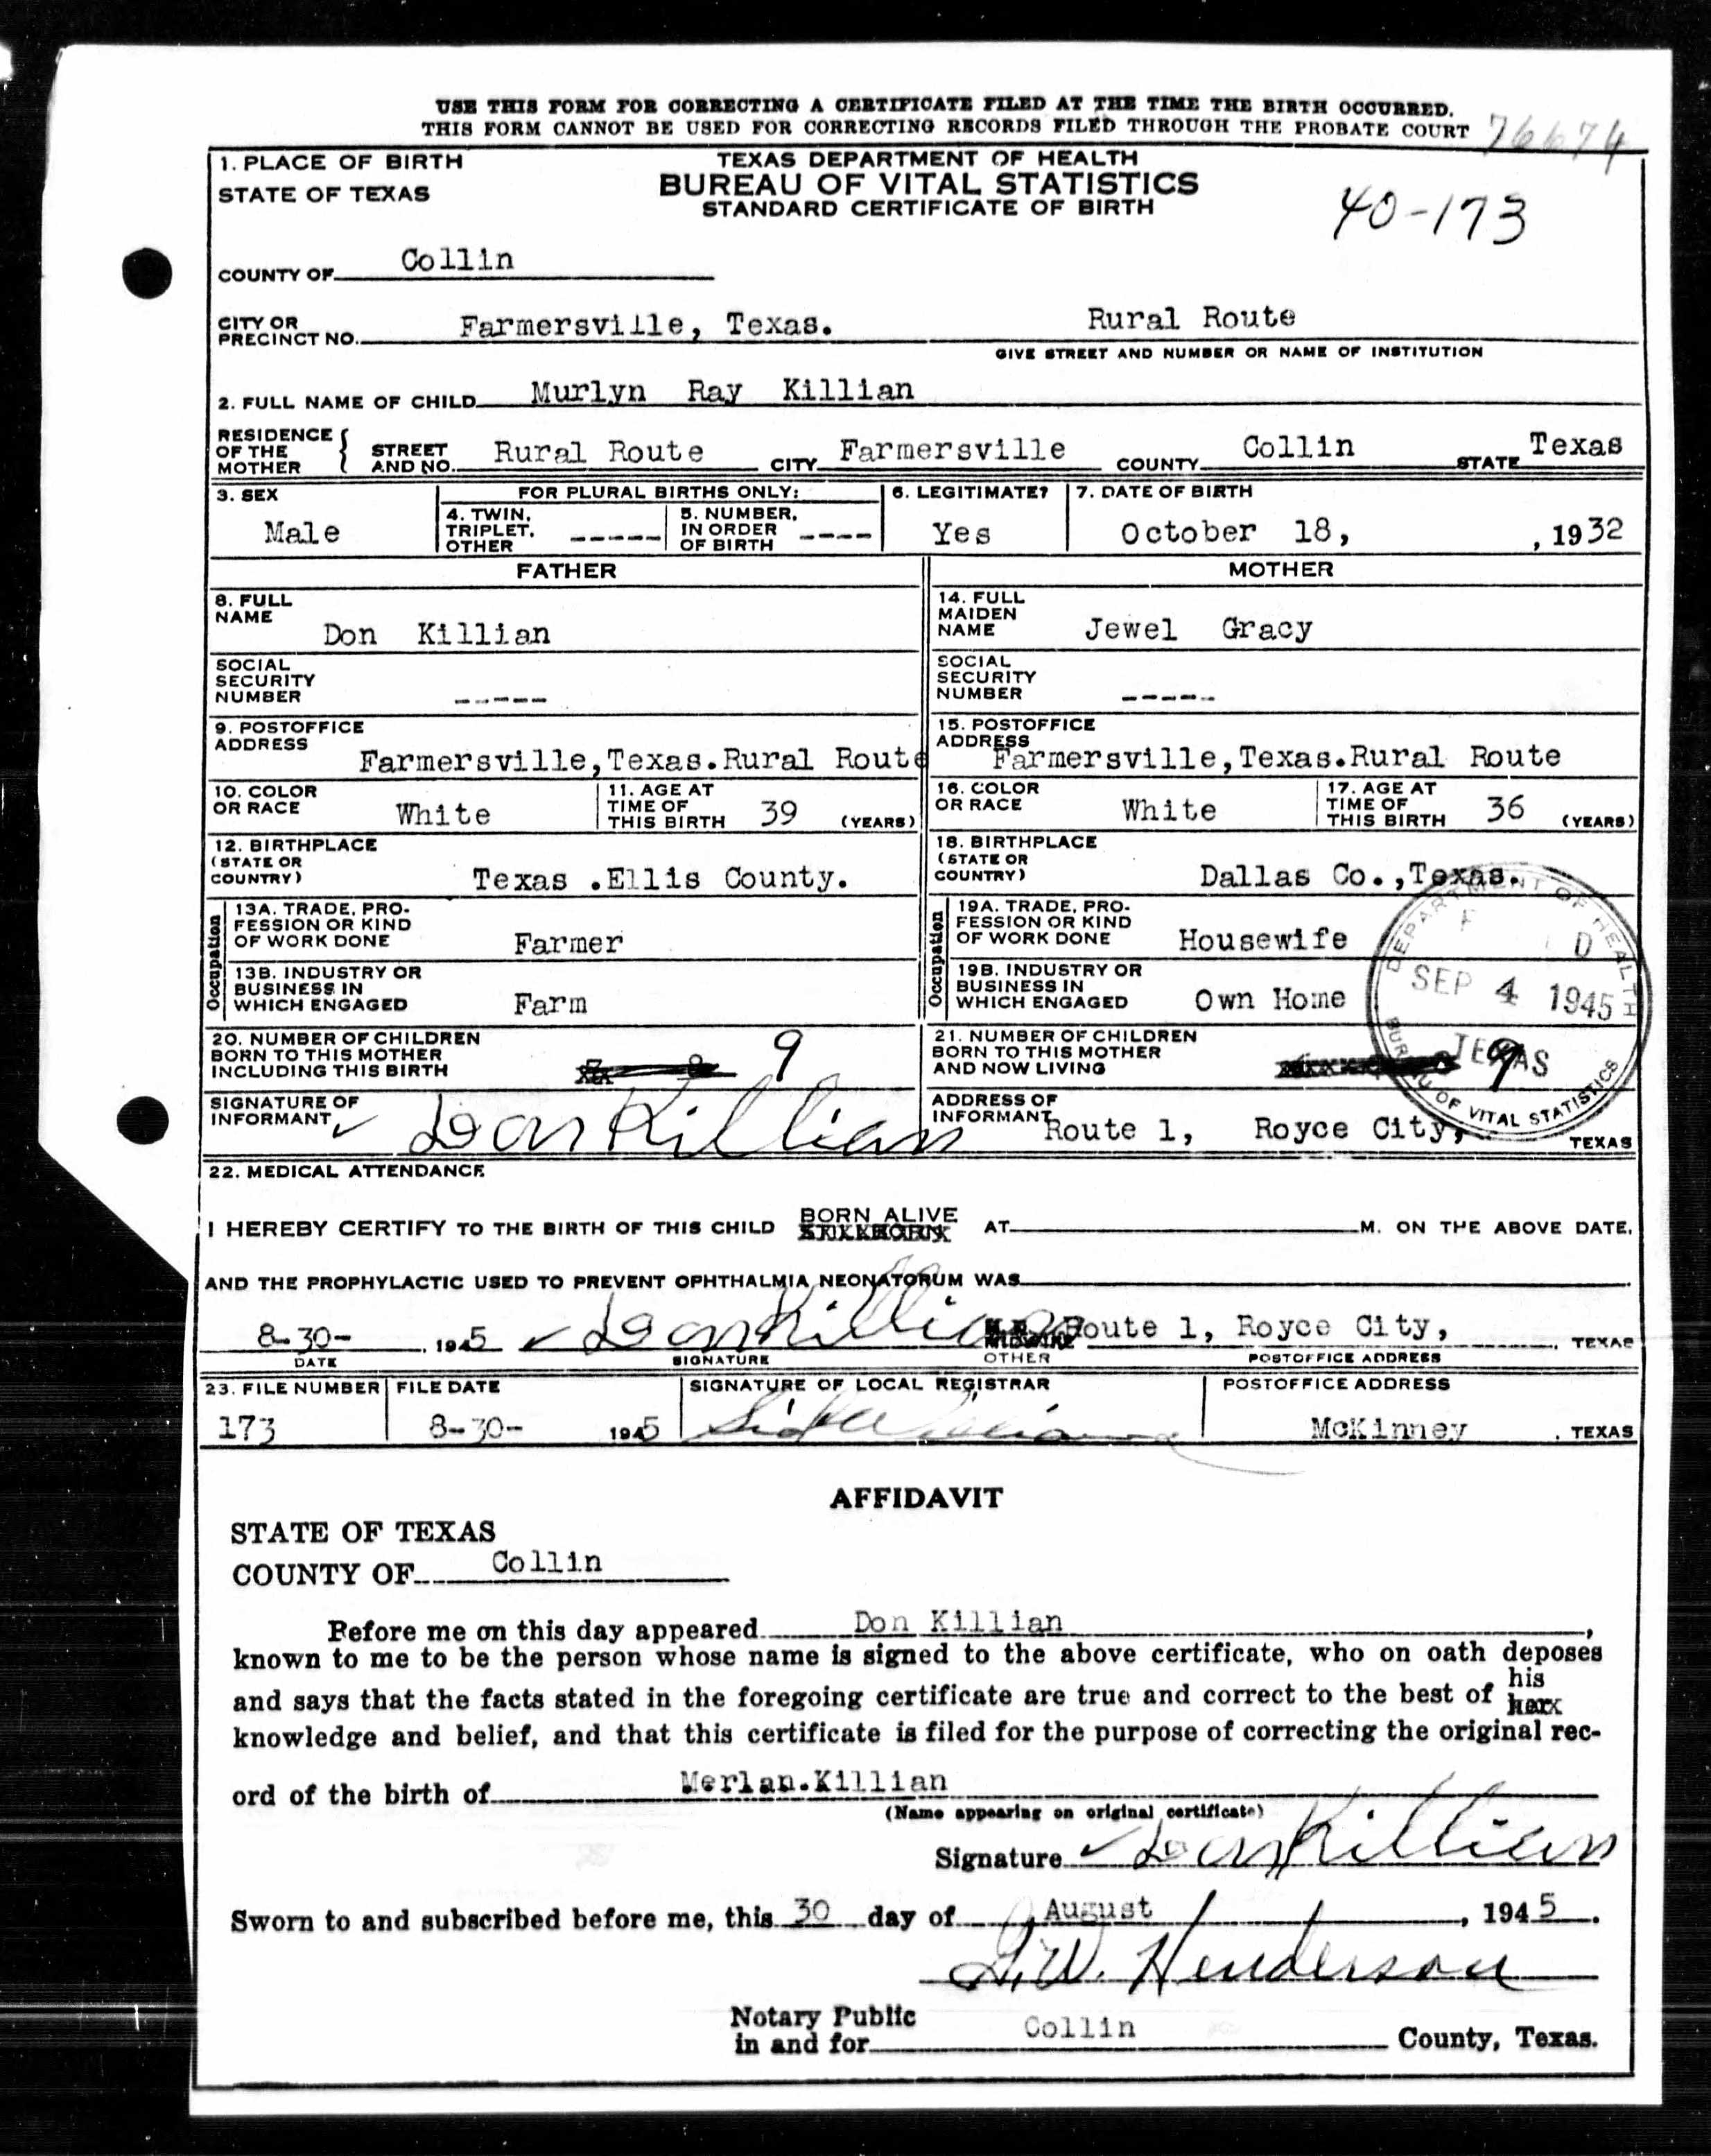 USE THIS FORM FOR CORRECTING A CERTIFICATE FILED AT THE TIME THE BIRTH OCCURRED.
THIS FORM CANNOT BE USED FOR CORRECTING RECORDS FILED THROUGH THE PROBATE COURT 76674
1. PLACE OF BIRTH TEXAS DEPARTMENT OF HEALTH
STATE OF TEXAS BUREAU OF VITAL STATISTICS
STANDARD CERTIFICATE OF BIRTH 40-173
COUNTY OF Collin
CITY OR PRECINCT NO. Farmersville, Texas. Rural Route
GIVE STREET AND NUMBER OR NAME OF INSTITUTION
2. FULL NAME OF CHILD Murlyn Ray Killian
RESIDENCE OF THE MOTHER { STREET AND NO. Rural Route CITY Farmersville COUNTY Collin STATE Texas
3. SEX Male FOR PLURAL BIRTHS ONLY: 4. TWIN, TRIPLET, OTHER ----- 5. NUMBER, IN ORDER OF BIRTH ---- 6. LEGITIMATE? Yes 7. DATE OF BIRTH October 18, , 1932
FATHER MOTHER
8. FULL NAME Don Killian 14. FULL MAIDEN NAME Jewel Gracy
SOCIAL SECURITY NUMBER ----- SOCIAL SECURITY NUMBER -----
9. POSTOFFICE ADDRESS Farmersville,Texas.Rural Route 15. POSTOFFICE ADDRESS Farmersville,Texas.Rural Route
10. COLOR OR RACE White 11. AGE AT TIME OF THIS BIRTH 39 (YEARS) 16. COLOR OR RACE White 17. AGE AT TIME OF THIS BIRTH 36 (YEARS)
12. BIRTHPLACE (STATE OR COUNTRY) Texas .Ellis County. 18. BIRTHPLACE (STATE OR COUNTRY) Dallas Co.,Texas.
Occupation 13A. TRADE, PROFESSION OR KIND OF WORK DONE Farmer Occupation 19A. TRADE, PROFESSION OR KIND OF WORK DONE Housewife
13B. INDUSTRY OR BUSINESS IN WHICH ENGAGED Farm 19B. INDUSTRY OR BUSINESS IN WHICH ENGAGED Own Home
DEPARTMENT OF HEALTH SEP 4 1945 TEXAS BUREAU OF VITAL STATISTICS
20. NUMBER OF CHILDREN BORN TO THIS MOTHER INCLUDING THIS BIRTH 9 21. NUMBER OF CHILDREN BORN TO THIS MOTHER AND NOW LIVING 9
SIGNATURE OF INFORMANT Don Killian ADDRESS OF INFORMANT Route 1, Royce City, TEXAS
22. MEDICAL ATTENDANCE
I HEREBY CERTIFY TO THE BIRTH OF THIS CHILD BORN ALIVE AT M. ON THE ABOVE DATE,
AND THE PROPHYLACTIC USED TO PREVENT OPHTHALMIA NEONATORUM WAS
8-30- , 1945 Don Killian Route 1, Royce City, , TEXAS
DATE SIGNATURE OTHER POSTOFFICE ADDRESS
23. FILE NUMBER FILE DATE SIGNATURE OF LOCAL REGISTRAR POSTOFFICE ADDRESS
173 8-30- 1945 McKinney , TEXAS
AFFIDAVIT
STATE OF TEXAS
COUNTY OF Collin
Before me on this day appeared Don Killian,
known to me to be the person whose name is signed to the above certificate, who on oath deposes
and says that the facts stated in the foregoing certificate are true and correct to the best of his
knowledge and belief, and that this certificate is filed for the purpose of correcting the original rec-
ord of the birth of Merlan.Killian
(Name appearing on original certificate)
Signature Don Killian
Sworn to and subscribed before me, this 30 day of August, 1945.
Henderson
Notary Public
in and for Collin County, Texas.